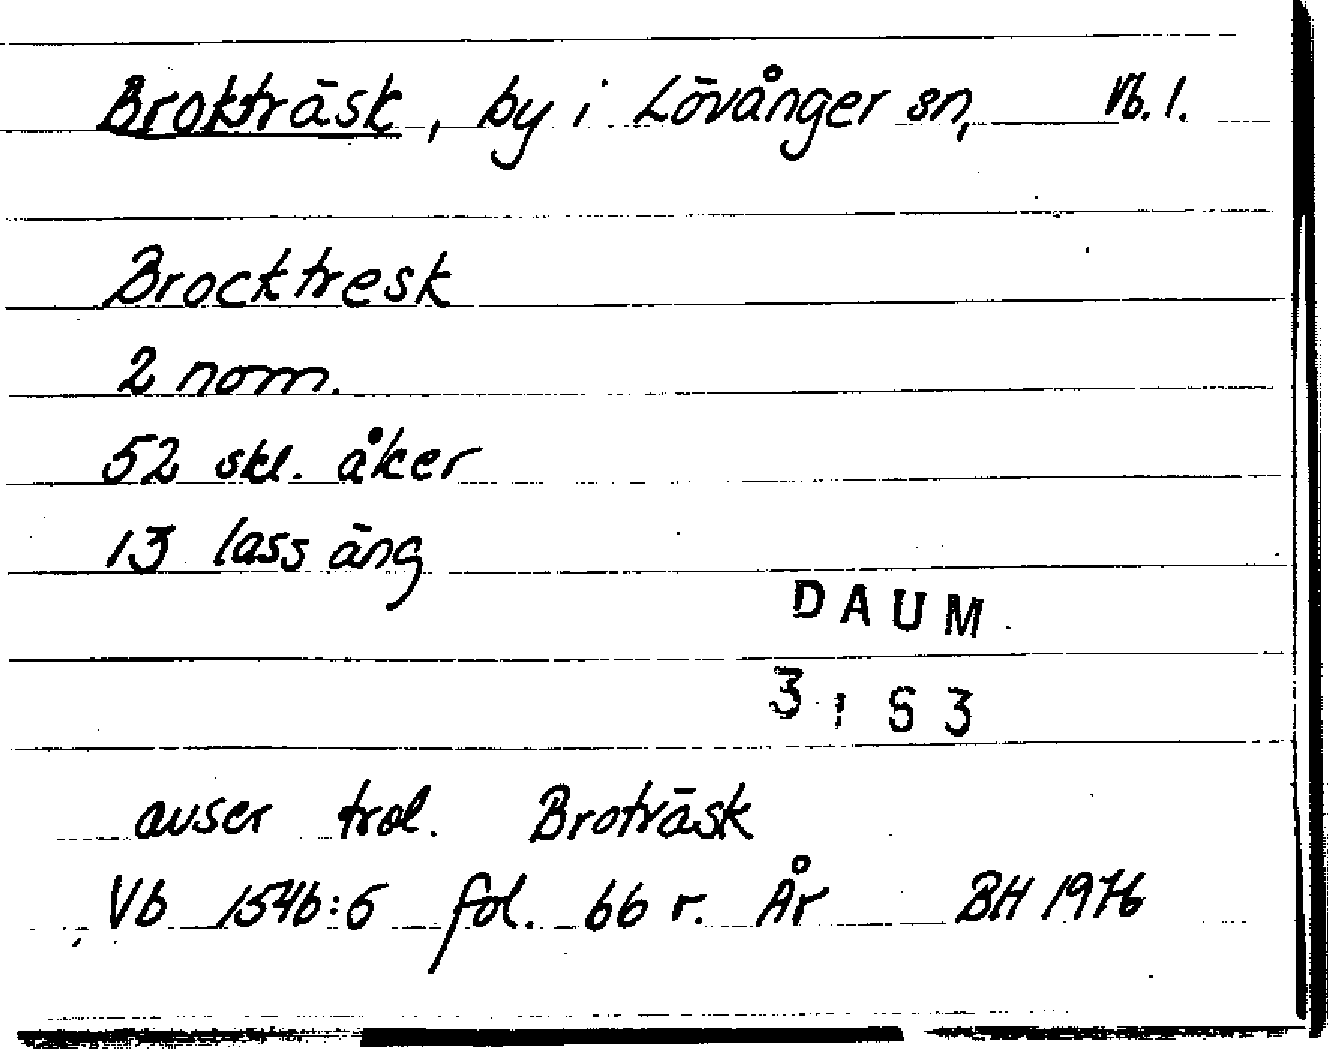 Brokträsk, by i Lövånger sn, Vb. l.
Brocktresk
2 nom.
52 skl. åker
13 lass äng
DAUM
3153
avser trol. Broträsk
Vb 1546:6 fol. 66 r. År BH 1976